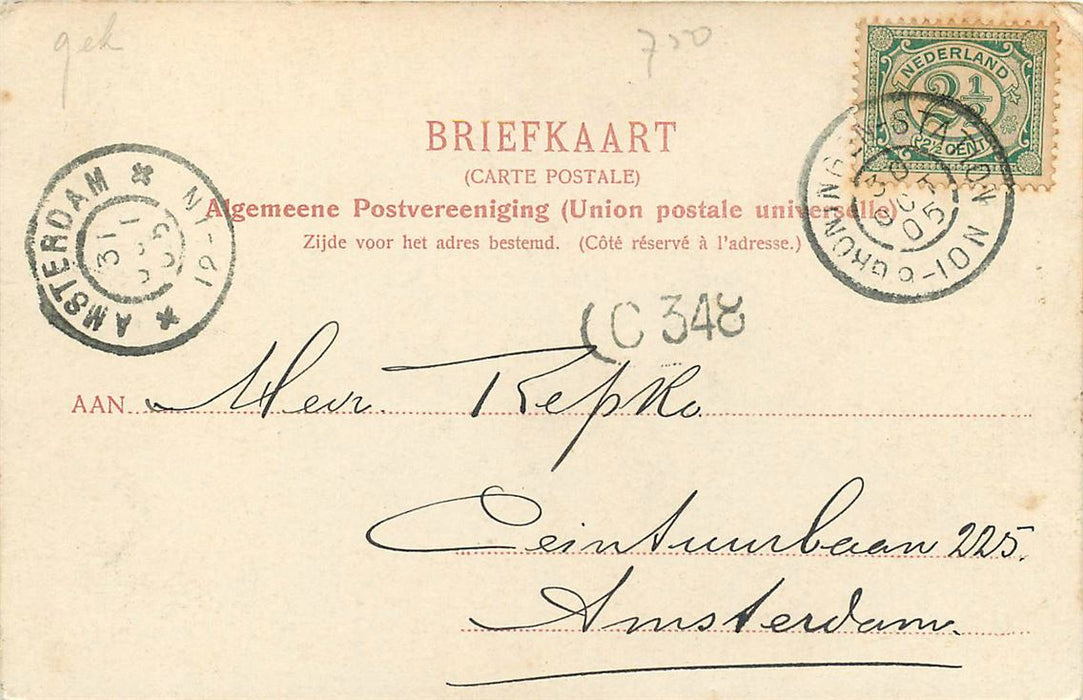 gek
750
NEDERLAND
2½
2½ CENT
BRIEFKAART
(CARTE POSTALE)
Algemeene Postvereeniging (Union postale universelle)
Zijde voor het adres bestemd. (Côté réservé à l'adresse.)
AMSTERDAM
31
C 348
AAN Heer. Repko
Ceintuurbaan 225.
Amsterdam.